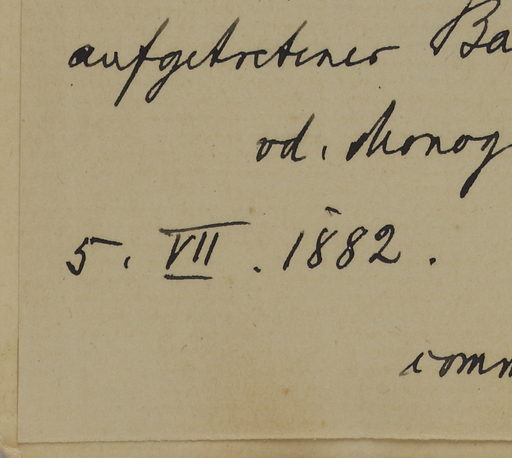 aufgetretener Ba
od. Monog
5. VII. 1882.
comm